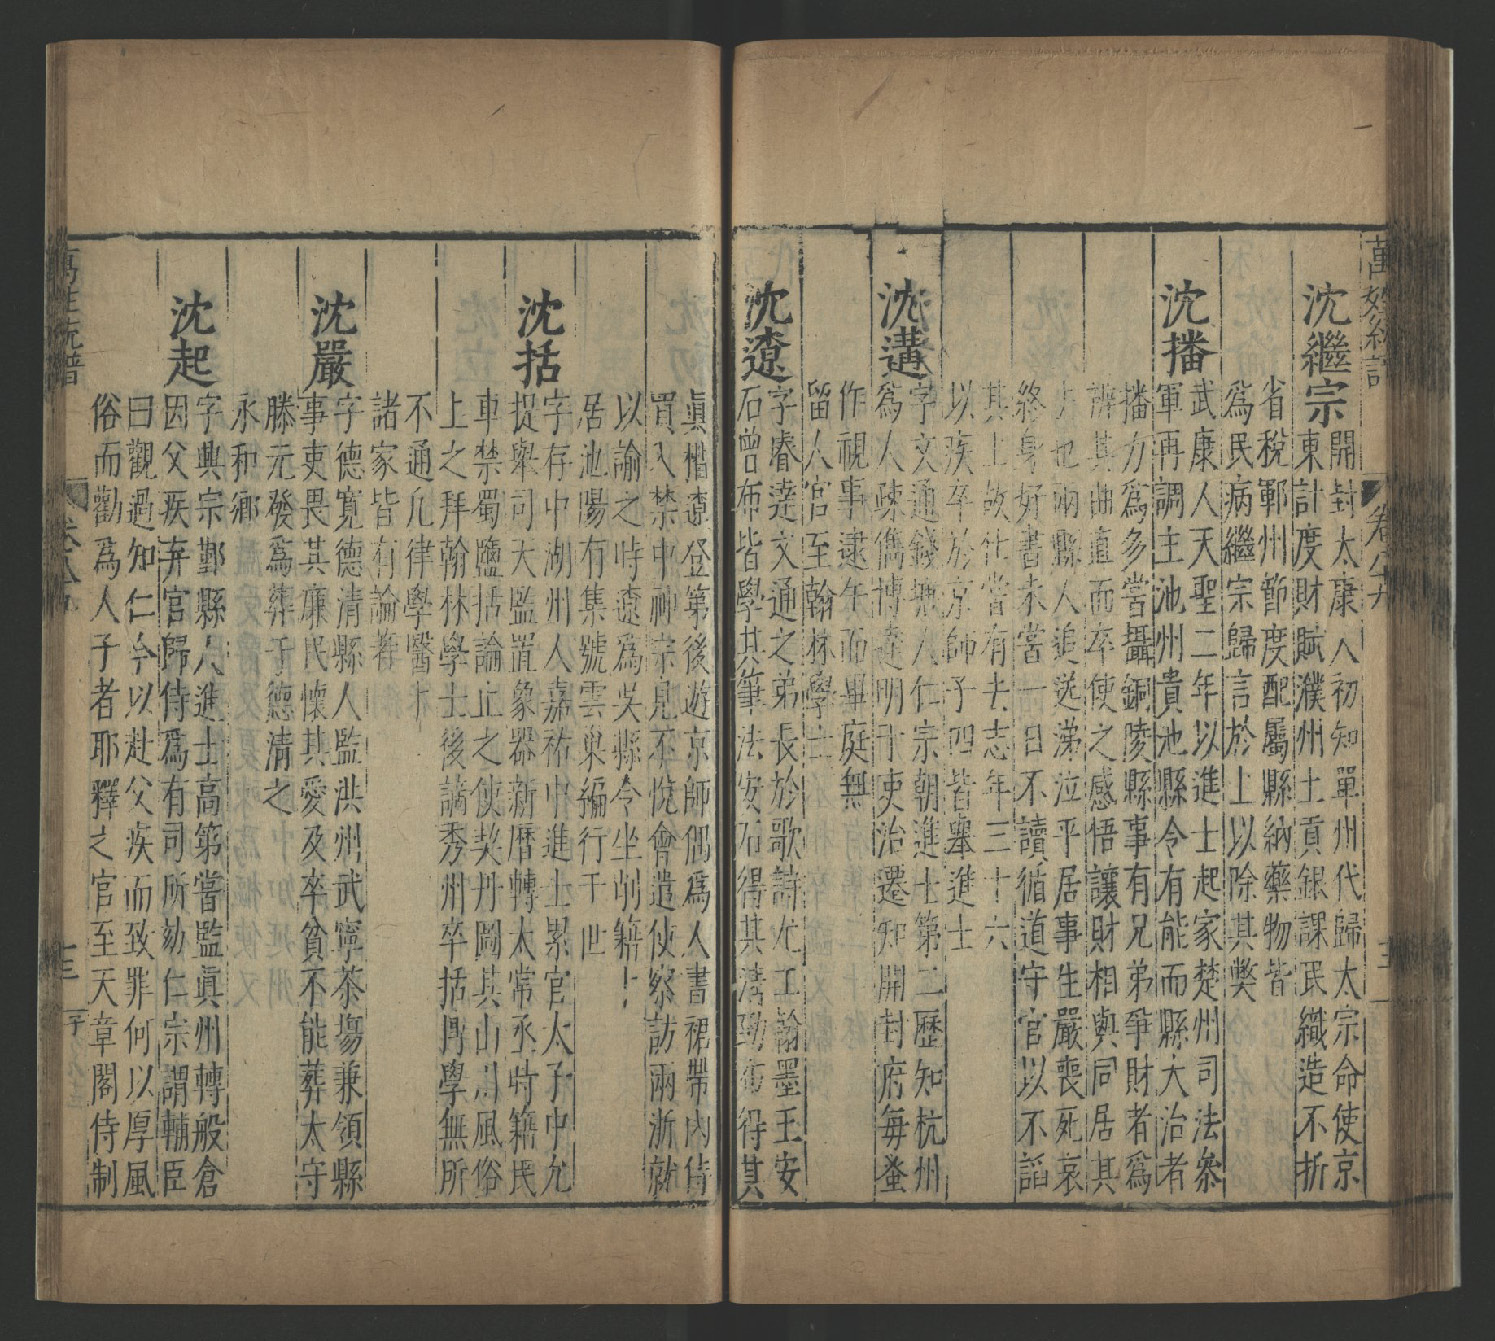 萬姓統譜
卷八十九
沈繼宗
開封太康人初知單州代歸太宗命使京
東計度財賦濮州土貢銀課民織造不折
省稅鄆州節度配屬縣納藥物皆
爲民病繼宗歸言於上以除其獘
沈播
武康人天聖二年以進士起家楚州司法叅
軍再調主池州貴池縣令有能而縣大治者
播力爲多當攝銅陵縣事有兄弟爭財者爲
辨其曲直而卒使之感悟讓財相與同居其
也兩縣人追送涕泣平居事生嚴喪死哀
終身好書未嘗一日不讀循道守官以不謟
其上故仕當有去志年三十六
以疾卒於京師子四皆舉進士
沈遘
字文通錢塘人仁宗朝進士第二歷知杭州
爲人疎儁博達明于吏治遷知開封府每蚤
作視事逮午而畢庭無
留人官至翰林學士
沈遼
字睿達文通之弟長於歌詩尤工翰墨王安
石曾布皆學其筆法安石得其清勁布得其
眞楷遼登第後遊京師偶爲人書裙帶內侍
買入禁中神宗見不悅會遣使察訪兩浙就
以諭之時遼爲吳縣令坐削籍
居池陽有集號雲巢編行于世
沈括
字存中湖州人嘉祐中進士累官太子中允
提舉司天監置象器新曆轉太常丞時籍民
車禁蜀鹽括論止之使契丹圖其山川風俗
上之拜翰林學士後謫秀州卒括博學無所
不通凢律學醫术
諸家皆有論著
沈嚴
字德寬德清縣人監洪州武寧茶塲兼領縣
事吏畏其廉民懷其愛及卒貧不能葬太守
滕元發爲葬于德清之
永和鄉
沈起
字興宗鄞縣人進士高第當監眞州轉般倉
因父疾弃官歸侍爲有司所劾仁宗謂輔臣
曰觀過知仁今以赴父疾而致罪何以厚風
俗而勸爲人子者耶釋之官至天章閣侍制
萬姓統譜
卷八十九
十三